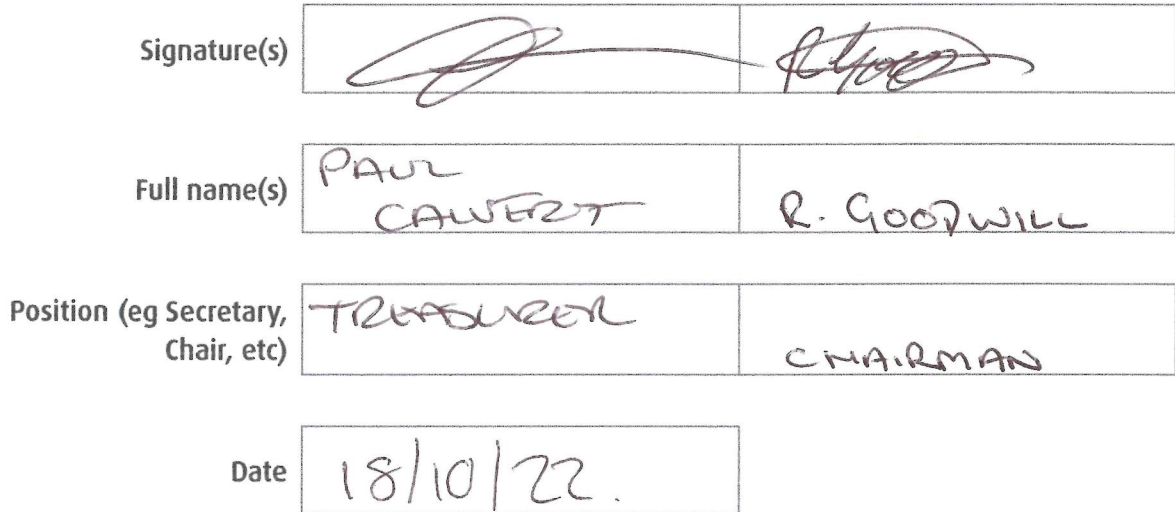 Signature(s)
Full name(s)
PAUL
CALVERT
R. GOODWILL
Position (eg Secretary,
Chair, etc)
TREASURER
CHAIRMAN
Date
18/10/22.